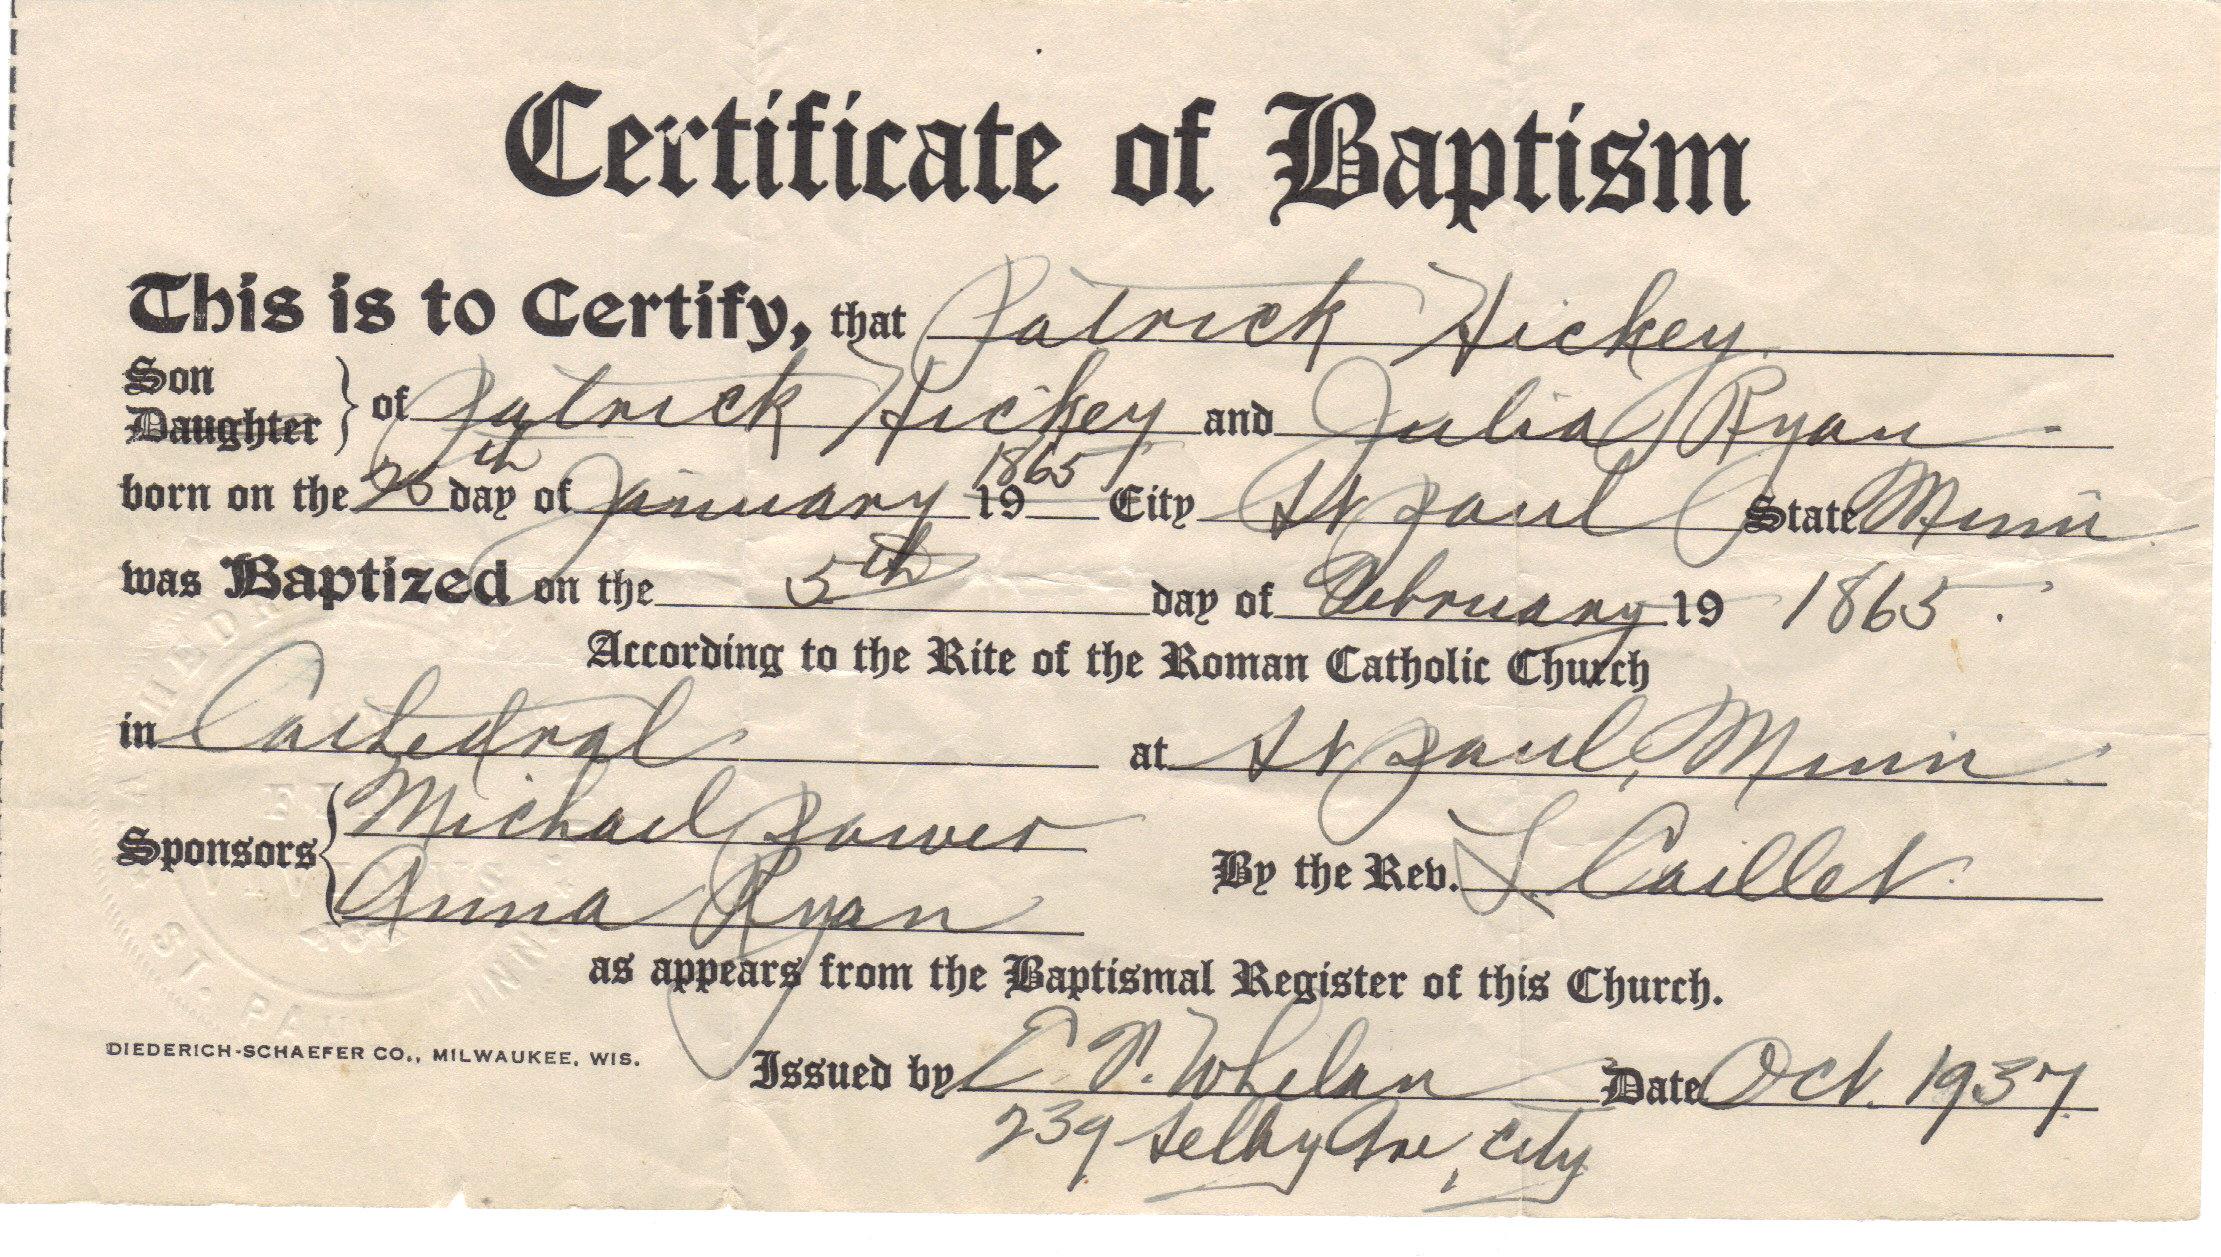 Certificate of Baptism
This is to Certify, that Patrick Hickey
Son
Daughter } of Patrick Hickey and Julia Ryan
born on the 26th day of January 19 1865 City St Paul State Minn
was Baptized on the 5th day of February 19 1865.
According to the Rite of the Roman Catholic Church
in Cathedral at St Paul, Minn
Sponsors { Michael Power
Anna Ryan
By the Rev. L. Caillet
as appears from the Baptismal Register of this Church.
DIEDERICH-SCHAEFER CO., MILWAUKEE, WIS.
Issued by Whelan Date Oct. 1937
239 Selby Ave, City
ST. PAUL